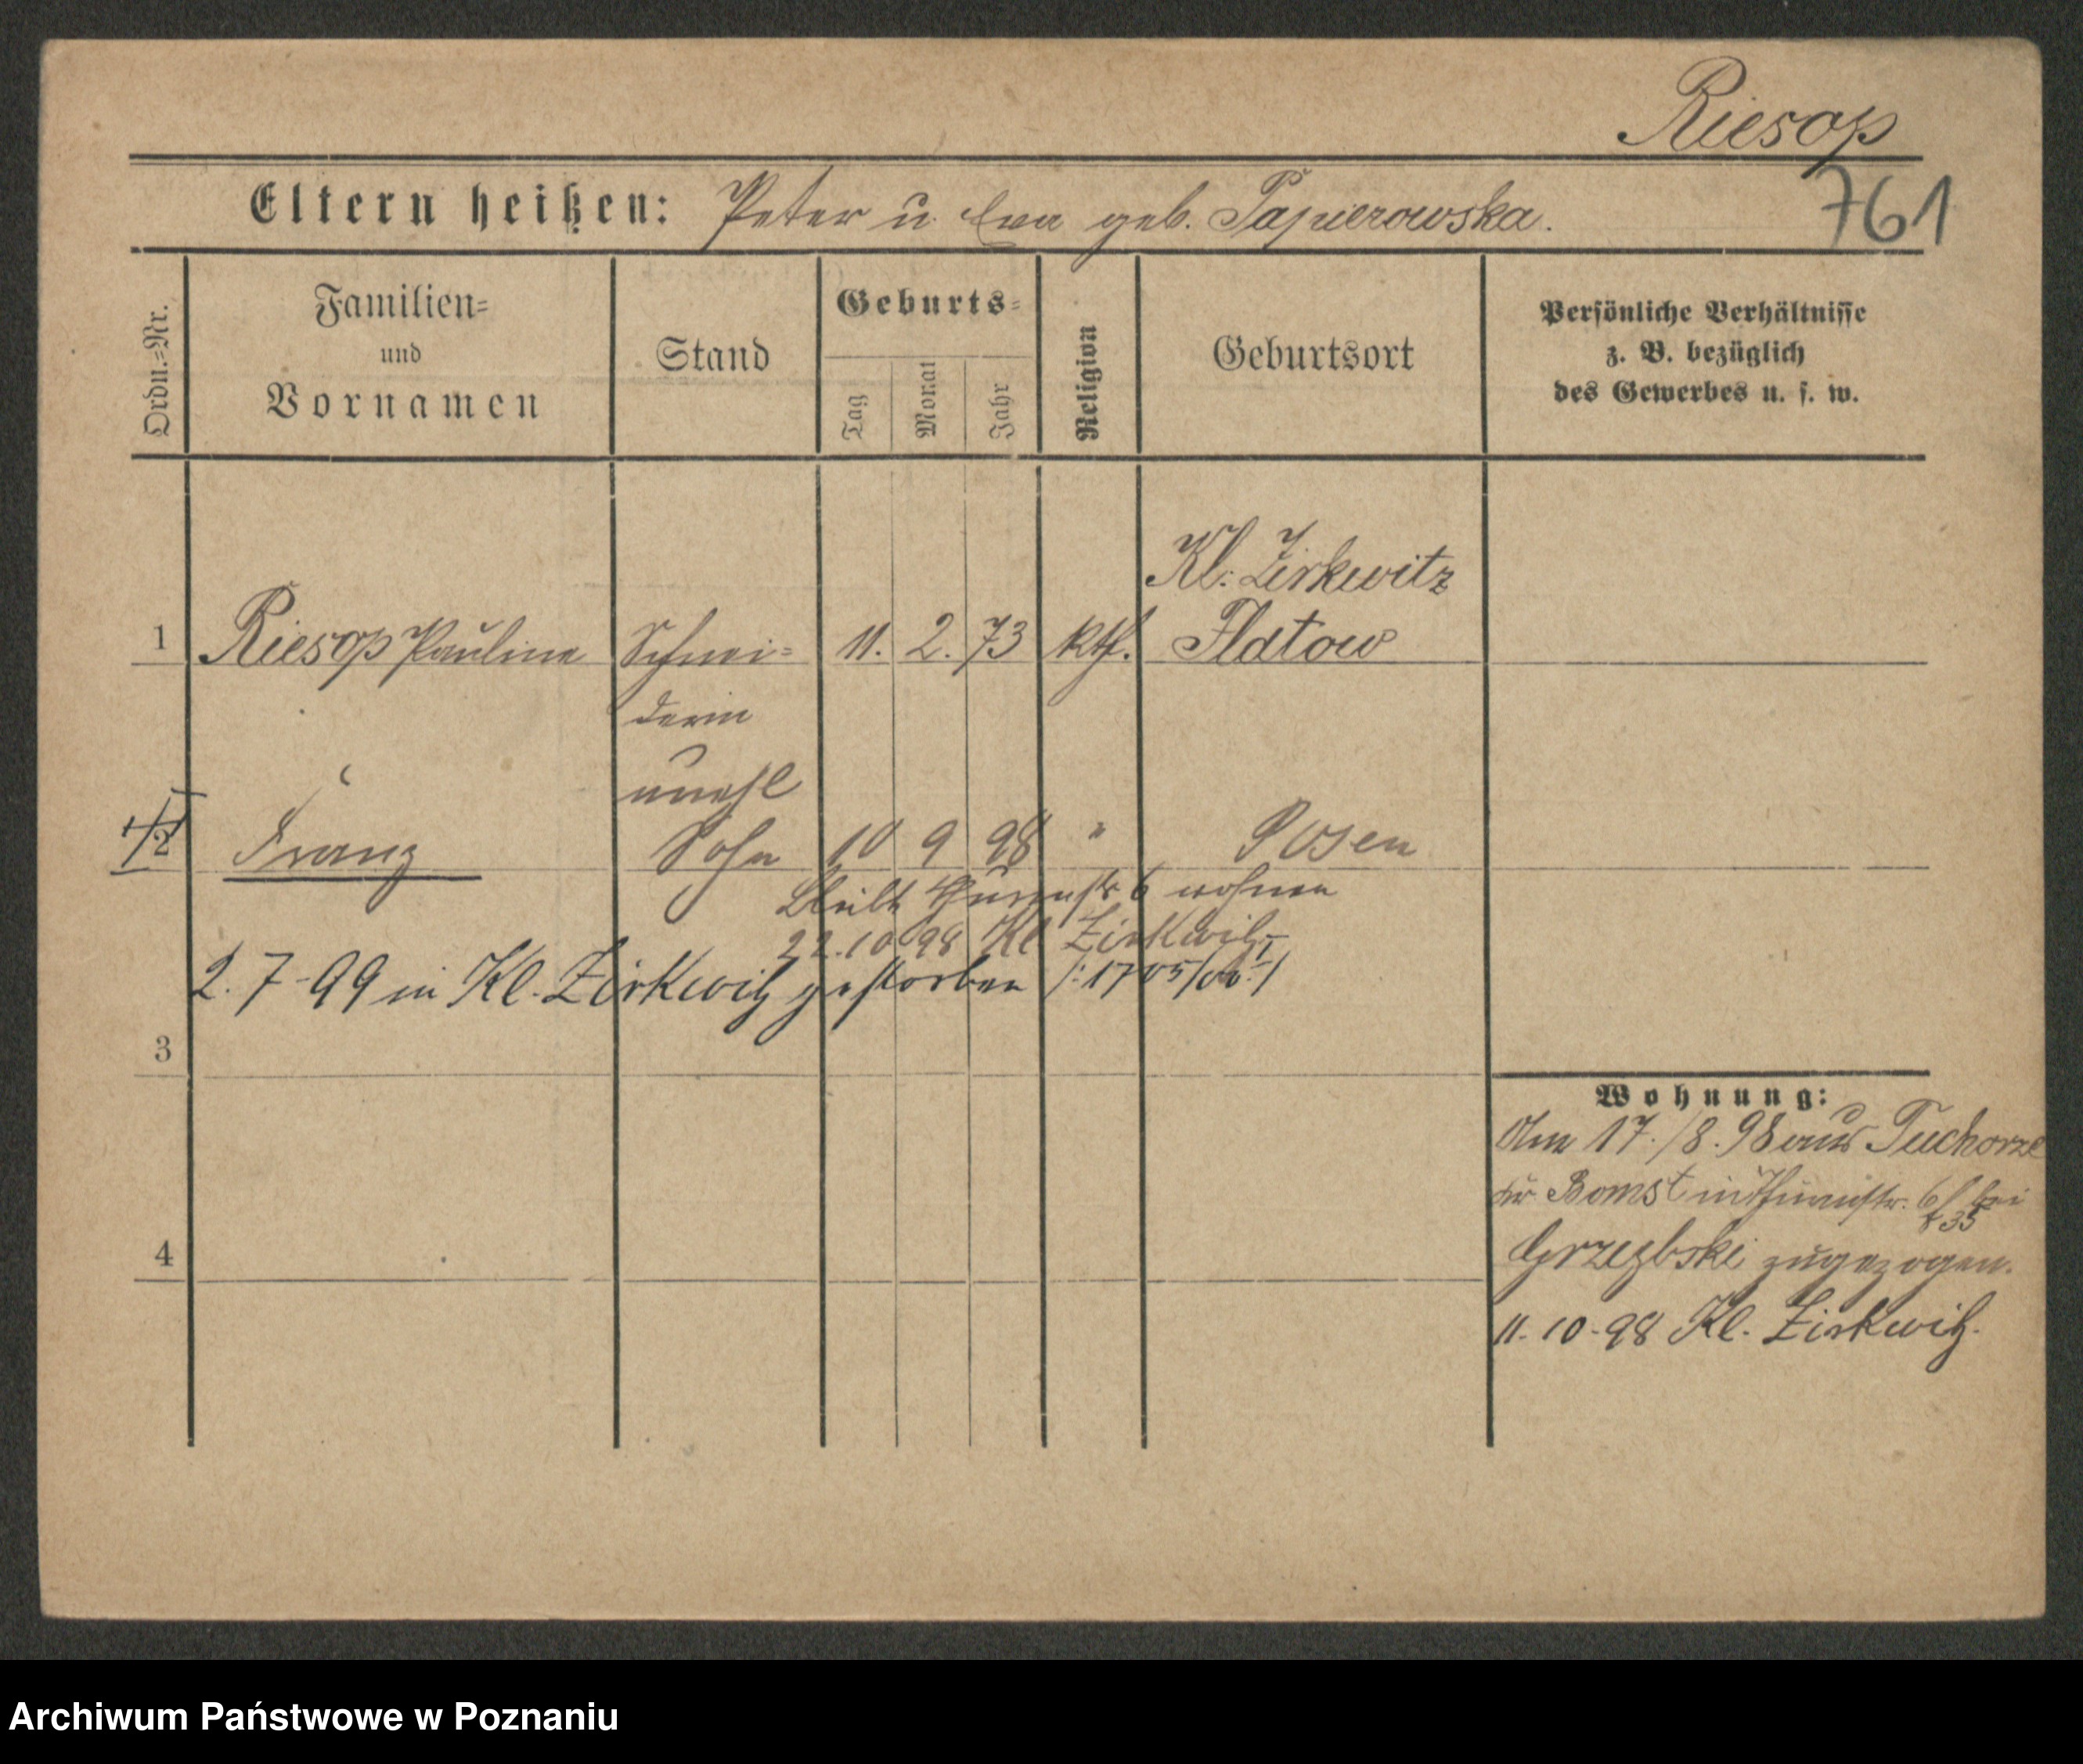 Riesop
761
Eltern heißen: Peter u. Eva geb. Papierowska.
Ordn.=Nr.
Familien=
und
Vornamen
Stand
Geburts=
Tag
Monat
Jahr
Religion
Geburtsort
Persönliche Verhältnisse
z. B. bezüglich
des Gewerbes u. s. w.
Kl. Zirkwitz
1 Riesop Pauline Schnei= 11. 2. 73 kth. Flatow
derin
unehl
2 Franz Sohn 10 9 98 " Posen
bleibt Thurmstr 6 wohnen
22.10 98 Kl Zirkwitz
2. 7-99 in Kl. Zirkwitz gestorben /: 1705/00 I :/
3
4
Wohnung:
Am 17./8. 98 aus Tuchorze
Kr. Bomst in Thurmstr. 6 bei
35
Grzezbski zugezogen.
11.10-98 Kl. Zirkwitz.
Archiwum Państwowe w Poznaniu